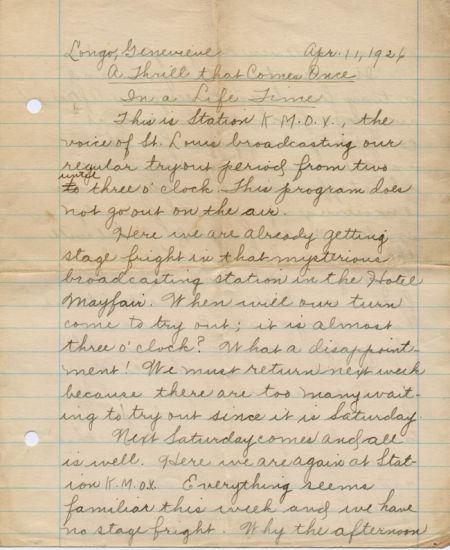 Longo, Genevieve Apr. 11, 1926
A Thrill that Comes Once
In a Life Time
This is Station K.M.O.X., the
voice of St. Louis broadcasting our
regular tryout period from two
until
to three o'clock. This program does
not go out on the air.
Here we are already getting
stage fright in that mysterious
broadcasting station in the Hotel
Mayfair. When will our turn
come to try out; it is almost
three o'clock? What a disappoint-
ment! We must return next week
because there are too many wait-
ing to try out since it is Saturday.
Next Saturday comes and all
is well. Here we are again at Stat-
ion K.M.O.X. Everything seems
familiar this week and we have
no stage fright. Why the afternoon